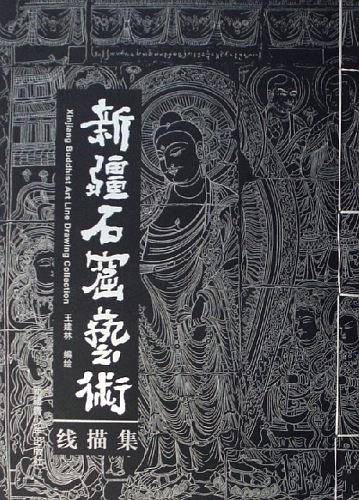 新疆石窟藝術
Xinjiang Buddhist Art Line Drawing Collection
王建林 编绘
线描集
出版社